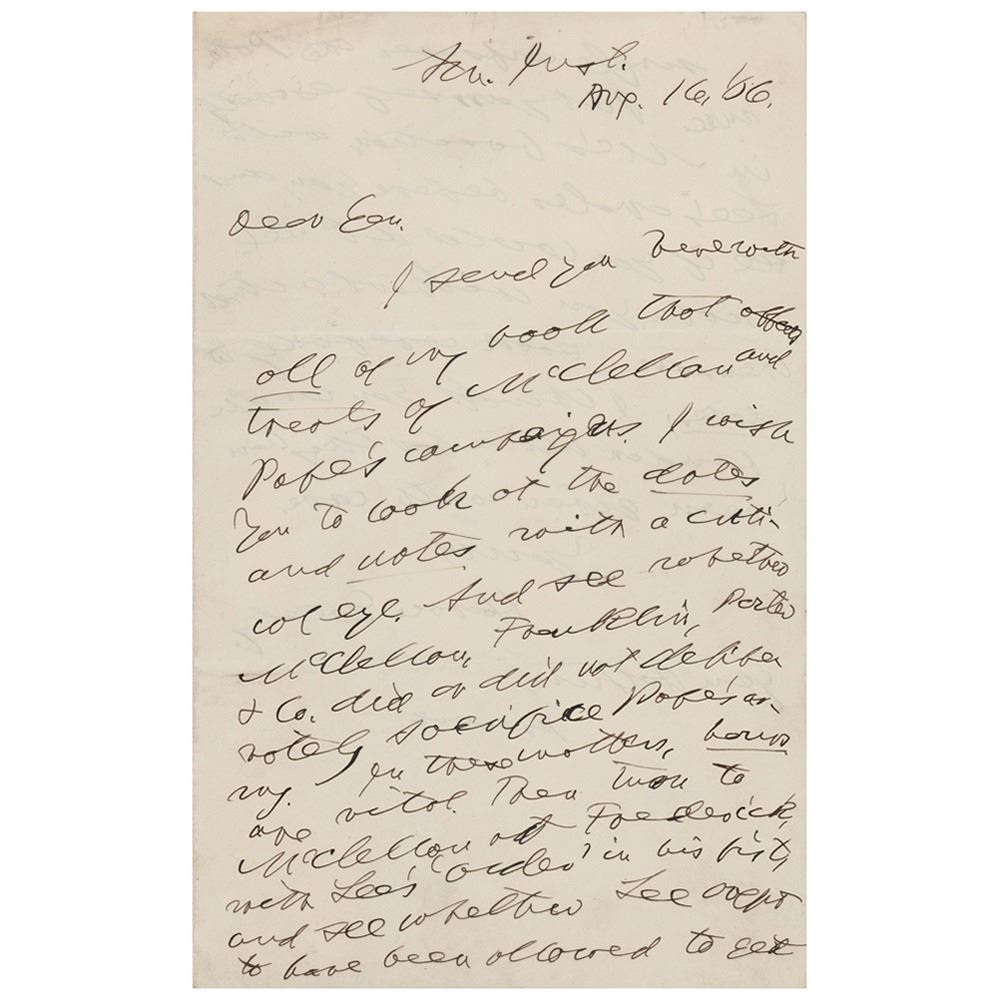 Am. Inst.
Aug. 16, '86.
Dear Gen.
I send you herewith
all of my book that affects
treats of McClellan and
Pope's campaigns. I wish
you to look at the dates
and notes with a criti-
cal eye. And see whether
McClellan, Franklin, Porter
& Co. did or did not deliber
ately sacrifice Pope's ar-
my. In these matters, hours
are vital. Then turn to
McClellan at Frederick,
with Lee's 'order' in his fist,
and see whether Lee ought
to have been allowed to get